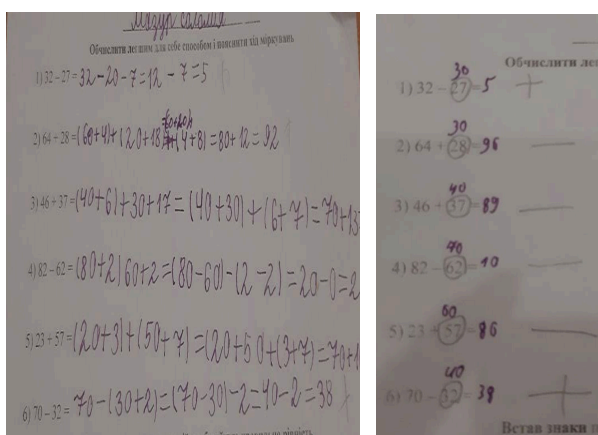 Мазур Соломія
Обчислити легшим для себе способом і пояснити хід міркувань
1) 32 – 27 = 32 – 20 – 7 = 12 – 7 = 5
2) 64 + 28 = (60+4)+(20+18) (60+20)+(4+8)=80+12=92
3) 46 + 37 = (40+6)+30+17=(40+30)+(6+7)=70+13
4) 82 – 62 = (80+2)60+2=(80-60)-(2-2)=20-0=2
5) 23 + 57 = (20+3)+(50+7)=(20+50+(3+7)=70+1
6) 70 – 32 = 70-(30+2)=(70-30)-2=40-2=38
Обчислити лег
30
1) 32 – 27 = 5 +
30
2) 64 + 28 = 96 —
40
3) 46 + 37 = 89 —
70
4) 82 – 62 = 10 —
60
5) 23 + 57 = 86 —
40
6) 70 – 32 = 38 +
Встав знаки